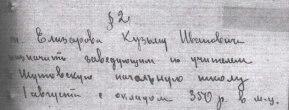 § 2
т. Елизарова Кузьму Ивановича
назначить заведующим и учителем
в Шутовскую начальную школу
с 1 августа с окладом 350 р. в м-ц.